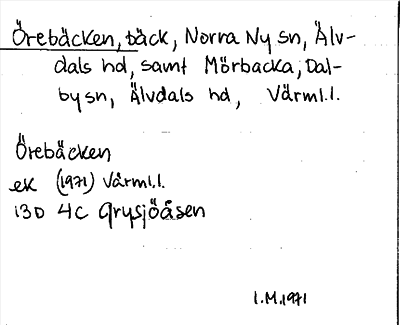 Örebäcken, bäck, Norra Ny sn, Älv-
dals hd, samt Mörbacka, Dal-
by sn, Älvdals hd, Värml.l.
Örebäcken
ek (1971) Värml.l.
13D 4c Grysjöåsen
I.M.1971